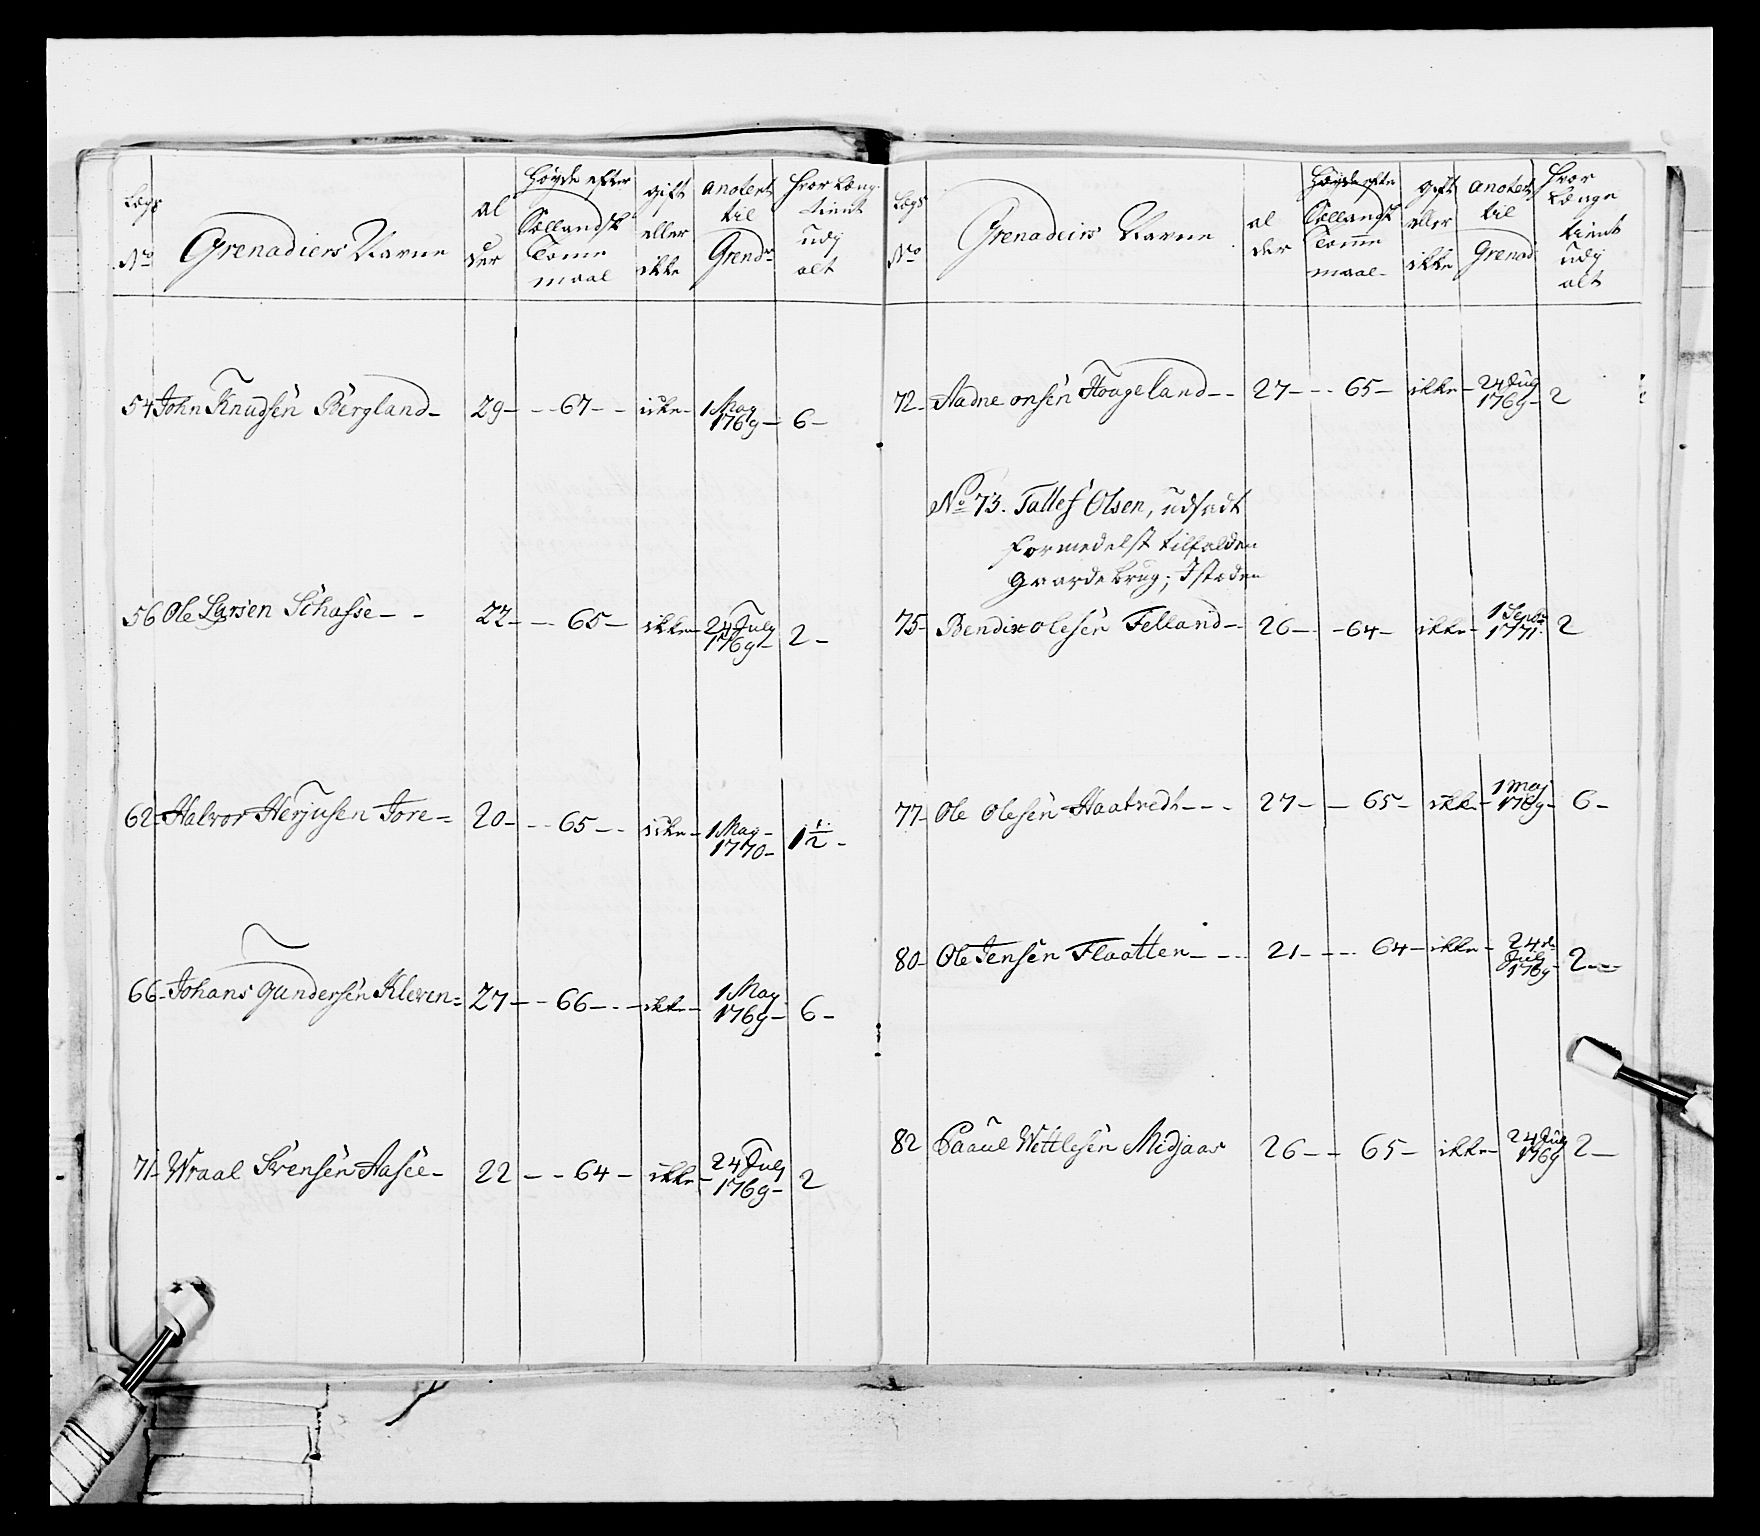 Lægs No Grenadiers Navne al der Høyde efter Sællandsk Tome maal gift eller ikke anotert til Grends hvor læng tient udj alt
54 John Knudsen Bergland 29 67 ikke 1 May 1769 6
56 Ole Larsen Schasse 22 65 ikke 24 July 1769 2
62 Halvor Herjusen Tore 20 65 ikke 1 May 1770 1 1/2
66 Johans Gundersen Kleven 27 66 ikke 1 May 1769 6
71 Wraal Svensen Aasee 22 64 ikke 24 July 1769 2
Lægs No Grenadeirs Navne al der Høyde efter Sællandsk Tomme maal gift eller ikke anotert til Grenad hvor længe tient udj alt
72 Aadne onsen Hougeland 27 65 ikke 24 July 1769 2
No 73. Tallef Olsen, udsadt
formedelst tilfalden
gaardebrug; Jstæden
75 Bendix olesen Felland 26 64 ikke 1 Septr 1771 2
77 Ole Olesen Haatvedt 27 65 ikke 1 Maj 1769 6
80 Ole Jensen Flaatten 21 64 ikke 24de July 1769 2
82 Paaul Wettlesen Midjaas 26 65 ikke 24 July 1769 2